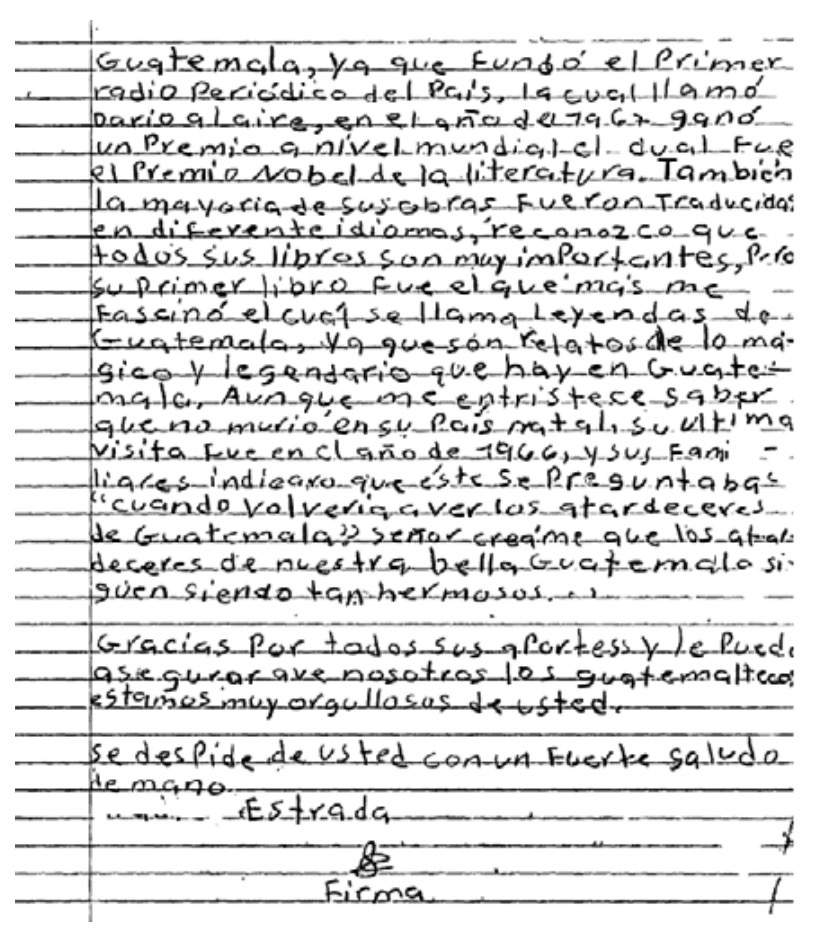 Guatemala, ya que fundó el Primer
radio Periódico del País, la cual llamó
Dario al aire, en el año de 1967 ganó
un Premio a nivel mundial el dual fue
el Premio Nobel de la literatura. También
la mayoria de sus obras fueron Traducidas
en diferente idiomas, reconozco que
todos sus libros son muy importantes, Pero
su primer libro fue el que más me
fascinó el cual se llama Leyendas de
Guatemala, ya que són relatos de lo má-
gico y legendario que hay en Guate-
mala, Aunque me entristece saber
que no murió en su País natal, su ultima
visita fue en el año de 1966, y sus fami -
liares indicaro que éste se Preguntabas
"cuando volveria a ver los atardeceres
de Guatemala?" señor creáme que los atar
deceres de nuestra bella Guatemala si-
guen siendo tan hermosos...
Gracias Por todos sus aportess y le Puedo
asegurar que nosotros los guatemaltecos
estamos muy orgullosos de usted.
se despide de usted con un Fuerte saludo
de mano.
Estrada
Firma